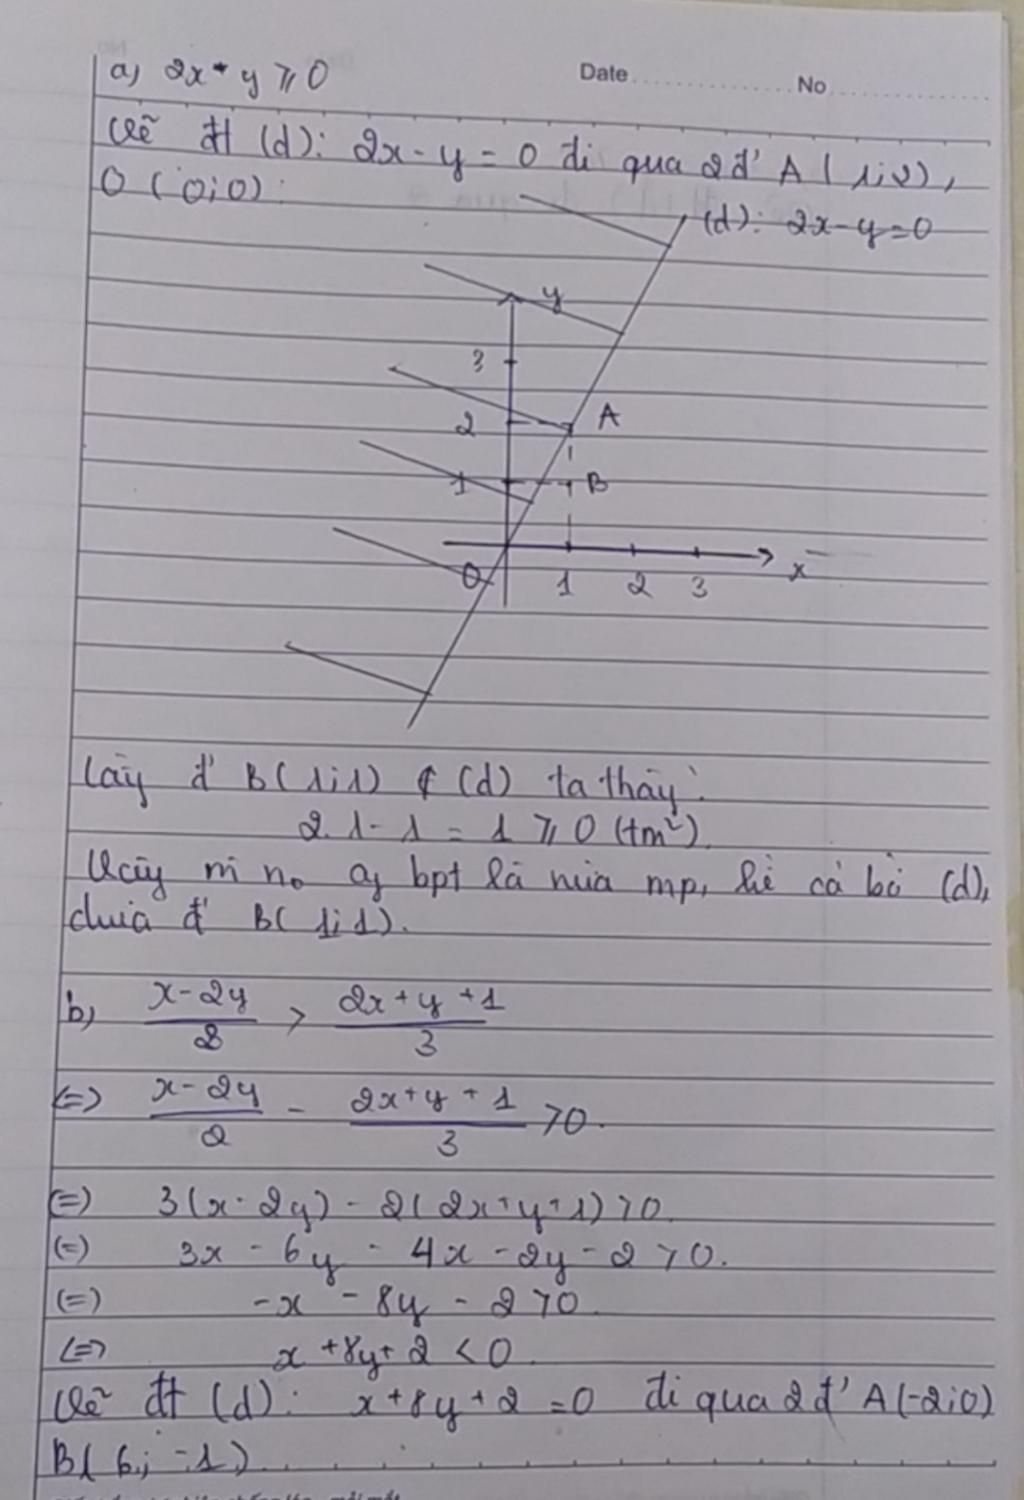 Date ............... No ...............
a) 2x - y ⩾ 0
Vẽ đt (d): 2x - y = 0 đi qua 2 đ' A (1;2),
O (0;0):
(d): 2x - y = 0
y
3
2
A
1
B
O
1 2 3
x
Lấy đ' B(1;1) ∉ (d) ta thấy:
2.1 - 1 = 1 ⩾ 0 (tm²)
Vậy m no of bpt là nửa mp, kể cả bờ (d),
chứa đ' B(1;1).
b) \frac{x-2y}{2} > \frac{2x+y+1}{3}
<=> \frac{x-2y}{2} - \frac{2x+y+1}{3} > 0.
(=) 3(x - 2y) - 2(2x + y + 1) > 0
(=) 3x - 6y - 4x - 2y - 2 > 0.
(=) -x - 8y - 2 > 0
<=> x + 8y + 2 < 0.
Vẽ đt (d): x + 8y + 2 = 0 đi qua 2 đ' A(-2;0)
B(6; -1)